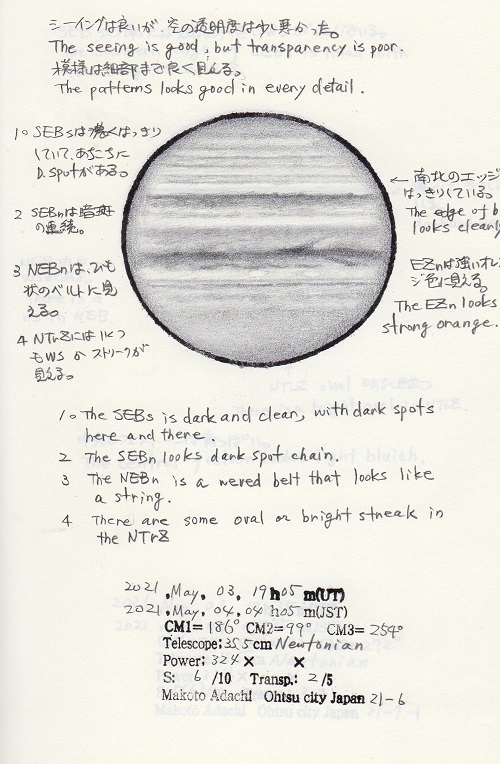 シーイングは良いが、空の透明度は少し悪かった。
The seeing is good, but transparency is poor.
模様は細部まで良く見える。
The patterns looks good in every detail.
1. SEBsは濃くはっきり
していて、あちこちに
D.spotがある。
2 SEBnは暗斑
の連続。
3 NEBnは、ひも
状のベルトに見
える。
4 NTrZにはいくつ
もWS か ストリークが
見える。
← 南北のエッジ
はっきりしている。
The edge of b
looks cleanly
EZnは強いオレン
ジ色に見える。
The EZn looks
strong orange.
1. The SEBs is dark and clean, with dark spots
here and there.
2 The SEBn looks dark spot chain.
3 The NEBn is a wered belt that looks like
a string.
4 There are some oval or bright streak in
the NTrZ
2021 . May. 03. 19 h 05 m(UT)
2021 . May. 04. 04 h 05 m(JST)
CM1= 186° CM2= 99° CM3= 254°
Telescope: 35.5 cm Newtonian
Power: 324 × ×
S: 6 /10 Transp.: 2 /5
Makoto Adachi Ohtsu city Japan 21-6